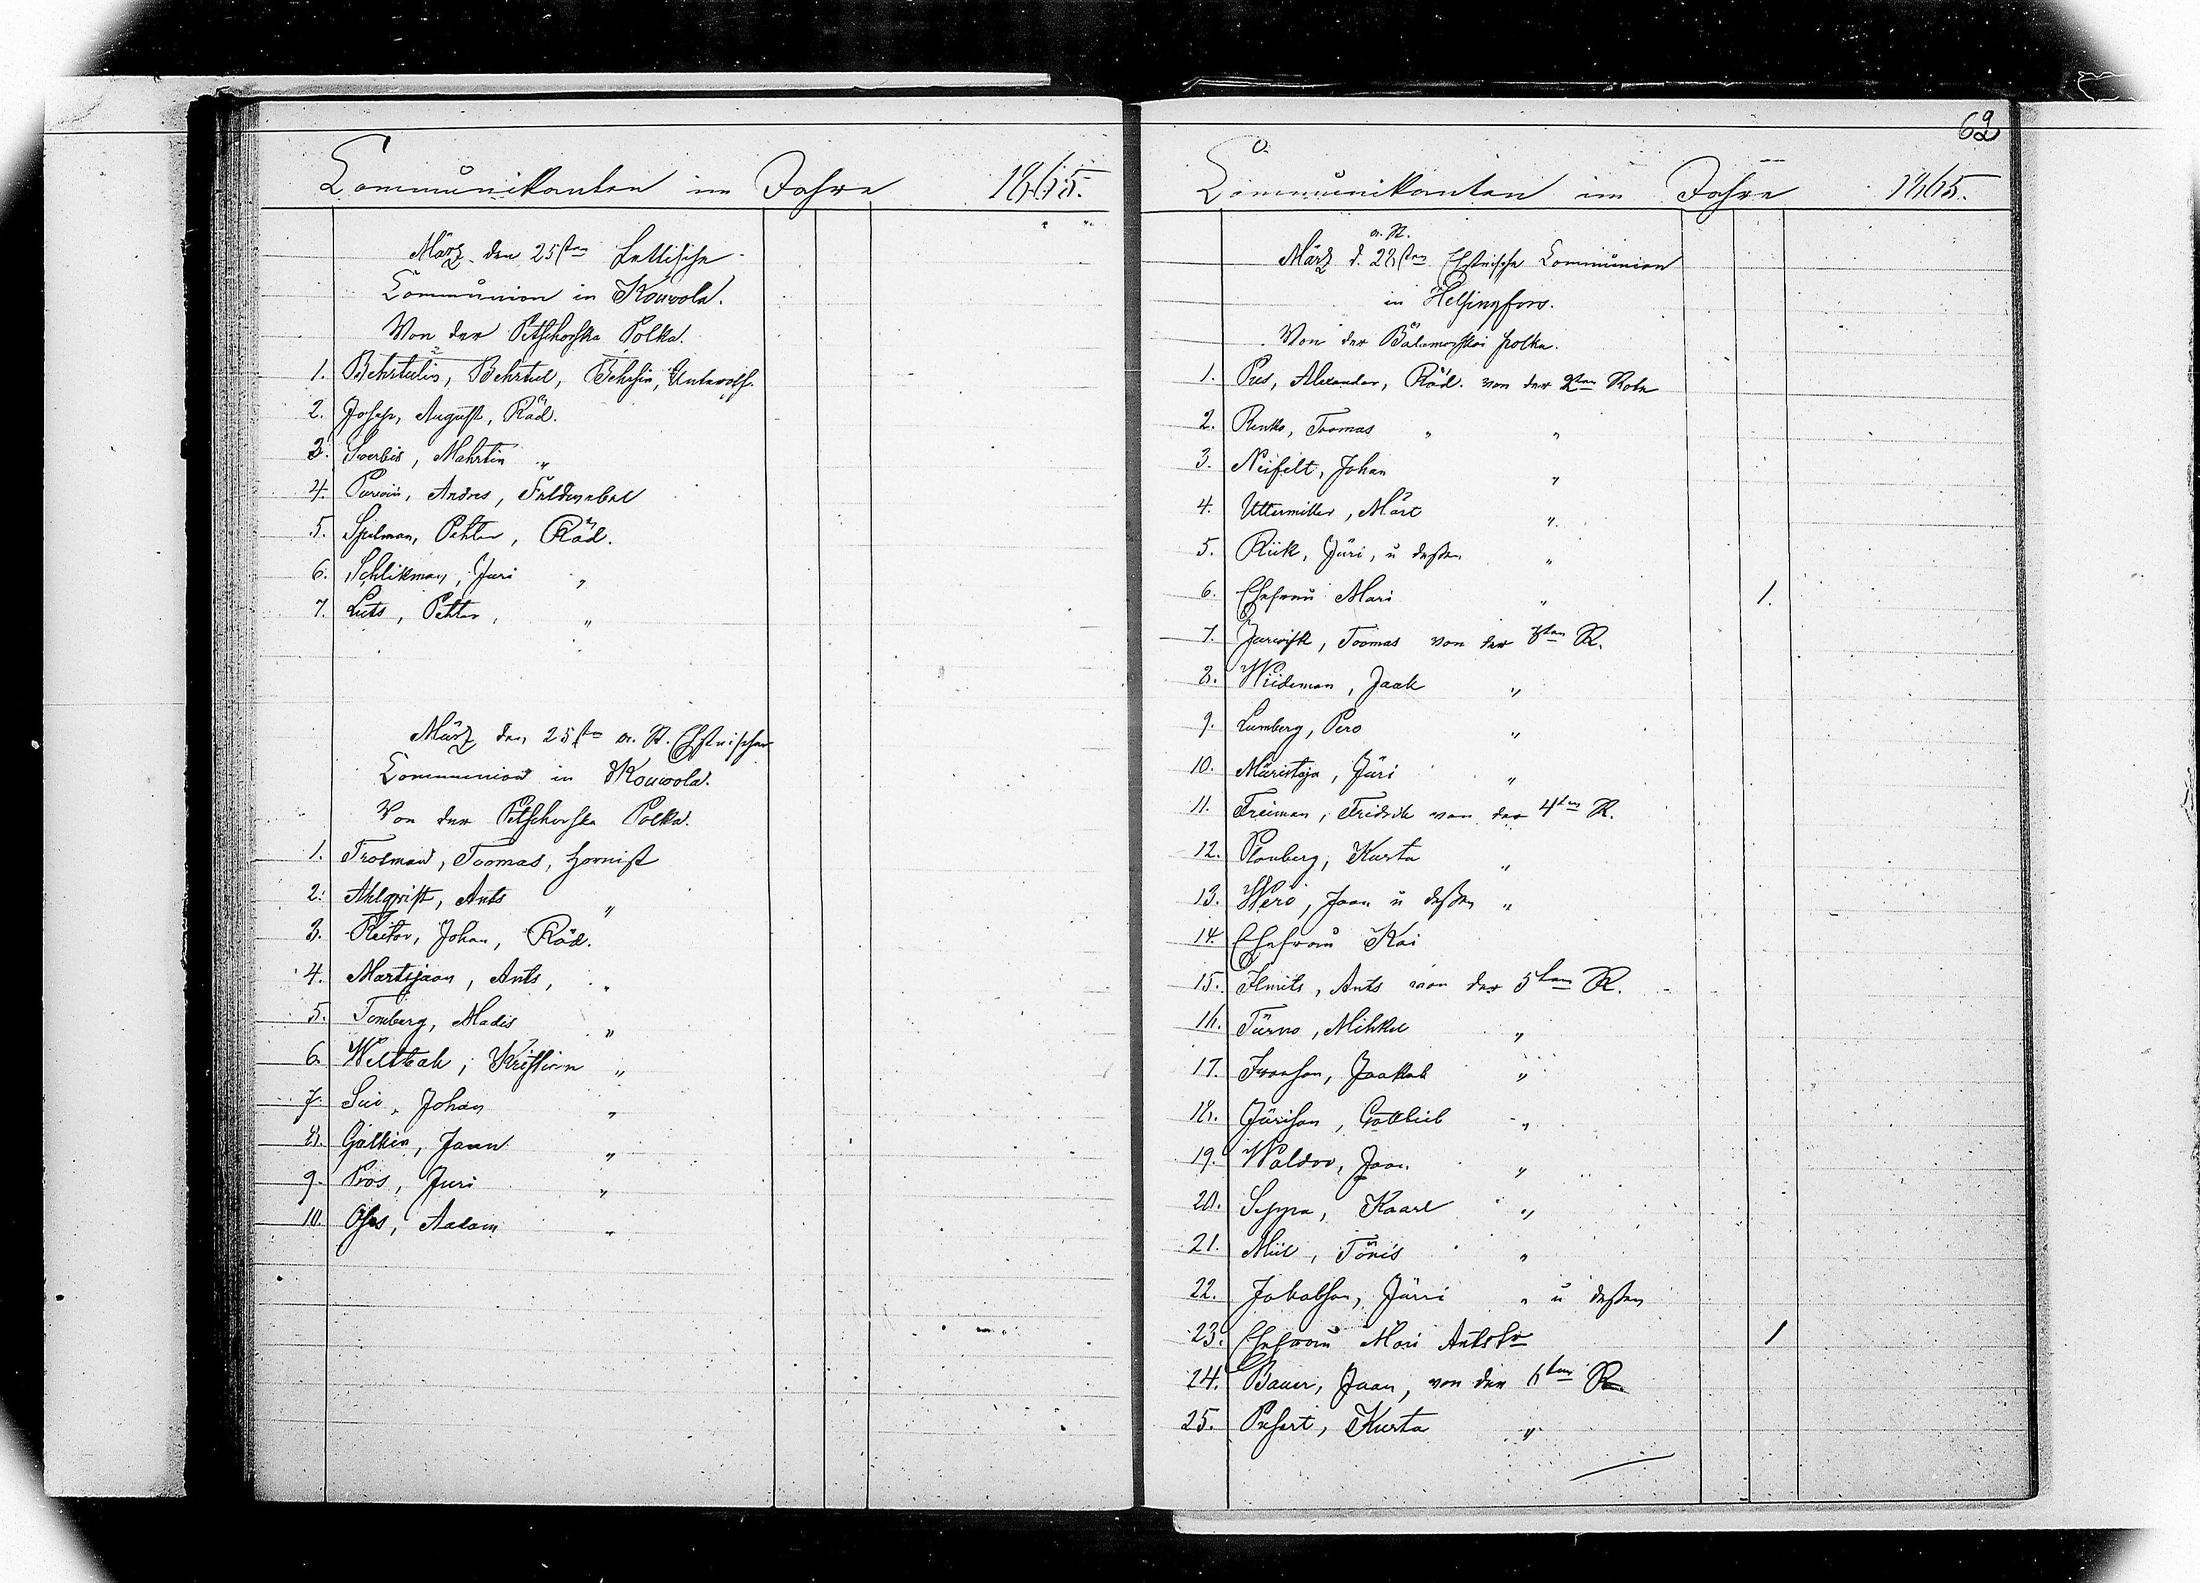 Communikanten im Jahre 1865.
März den 25sten Lettische
Communion in Kouvola.
Von der Petschorska Polka.
1. Behrtulis, Behrtul, Unterof.
2. Joseph, August, Räd.
3. Swerbis, Mahrtin "
4. Andres, Feldwebel
5. Spilman, Pehter, Räd.
6. Schlikman, Juri "
7. Luts, Pehter, "
März den 25sten a. St. Ehstnischer
Communion in Kouvola.
Von der Petschorska Polka.
1. Trosman, Toomas, Hornist
2. Ahlqvist, Ants "
3. Reitov, Johan, Räd.
4. Martijaan, Ants, "
5. Tomberg, Madis "
6. Weltbak, Kristian "
7. Sui, Johan "
8. Galkin, Jaan "
9. Pros, Juri "
10. Adam "
62
Communikanten im Jahre 1865.
a. St.
März d. 28sten Ehstnische Communion
in Helsingfors.
Von der polka.
1. Pus, Alexander, Räd. von der 2ten Rote
2. Renko, Toomas " "
3. Neifelt, Johan "
4. Uttermiller, Märt "
5. Riik, Jüri, u deßen "
6. Ehefrau Mari " 1.
7. Toomas von der 3ten R.
8. Wiideman, Jaak "
9. Lumberg, Pero "
10. Müristaja, Jüri "
11. Freiman, Fridrik von der 4ten R.
12. Planberg, Kusta "
13. Wero, Jaan u deßen "
14. Ehefrau Kai
15. Ilmits, Ants von der 5ten R.
16. Türno, Mihkel "
17. Iwanson, Jaakob "
18. Jürison, Gottlieb "
19. Waldov, Jaan "
20. Seppa, Kaarl "
21. Miil, Tõnis "
22. Jakobson, Jüri " u deßen
23. Ehefrau Mari 1
24. Bauer, Jaan, von der 6ten R
25. Kusta "